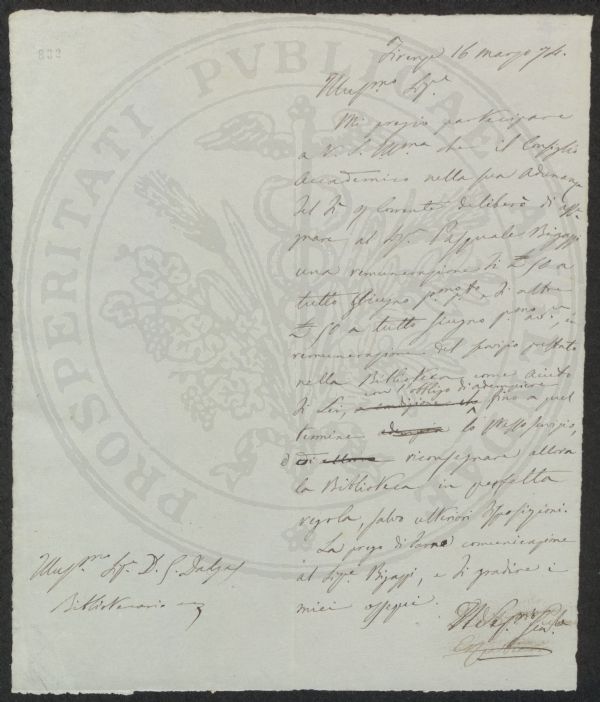 833
PROSPERITATI PVBLICAE
Firenze 16 marzo 74.
Illmo Sigre
Mi pregio partecipare
a V. S. Illma che il Consiglio
Accademico nella sua Adunanza
del dì 9 Corrente deliberò di asse-
gnare al Sigr Pasquale Bigazzi
una remunerazione di £ 50 a
tutto Giugno e di altre
£ 50 a tutto Giugno
remunerazione del servizio prestato
nella Biblioteca come aiuto
con l'obbligo di adempiere
di Lei, a condizione che fino a quel
termine lo stesso servizio,
e di riconsegnare allora
la Biblioteca in perfetta
regola, salvo ulteriori disposizioni.
La prego di farne comunicazione
al Sigre Bigazzi, e di gradire i
miei ossequi.
Sigr D. G.
Bibliotecario